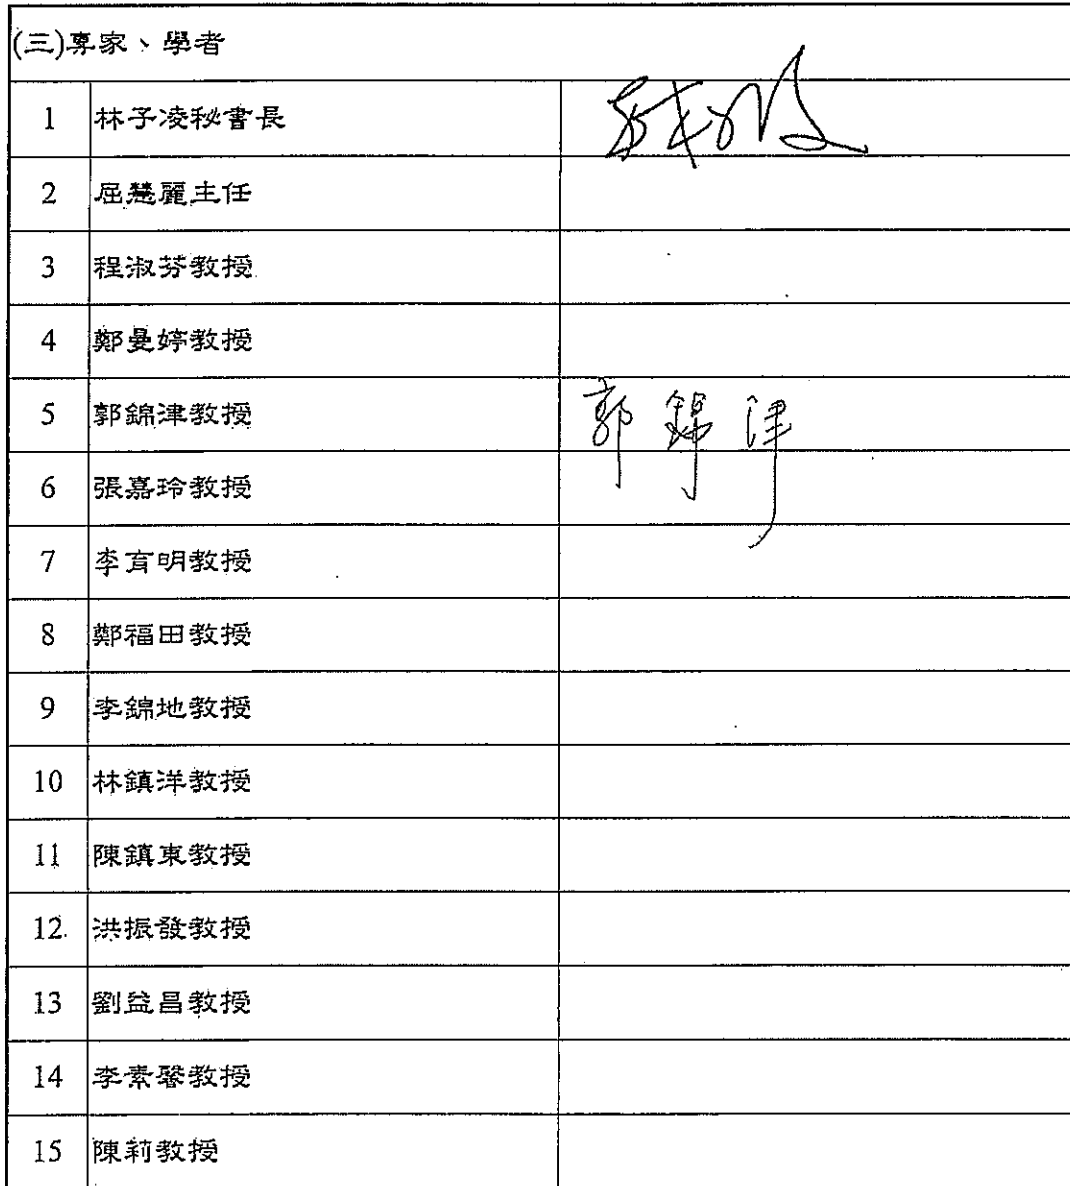 (三)專家、學者
1 林子凌秘書長
2 屈慧麗主任
3 程淑芬教授
4 鄭曼婷教授
5 郭錦津教授 郭錦津
6 張嘉玲教授
7 李育明教授
8 鄭福田教授
9 李錦地教授
10 林鎮洋教授
11 陳鎮東教授
12 洪振發教授
13 劉益昌教授
14 李素馨教授
15 陳莉教授